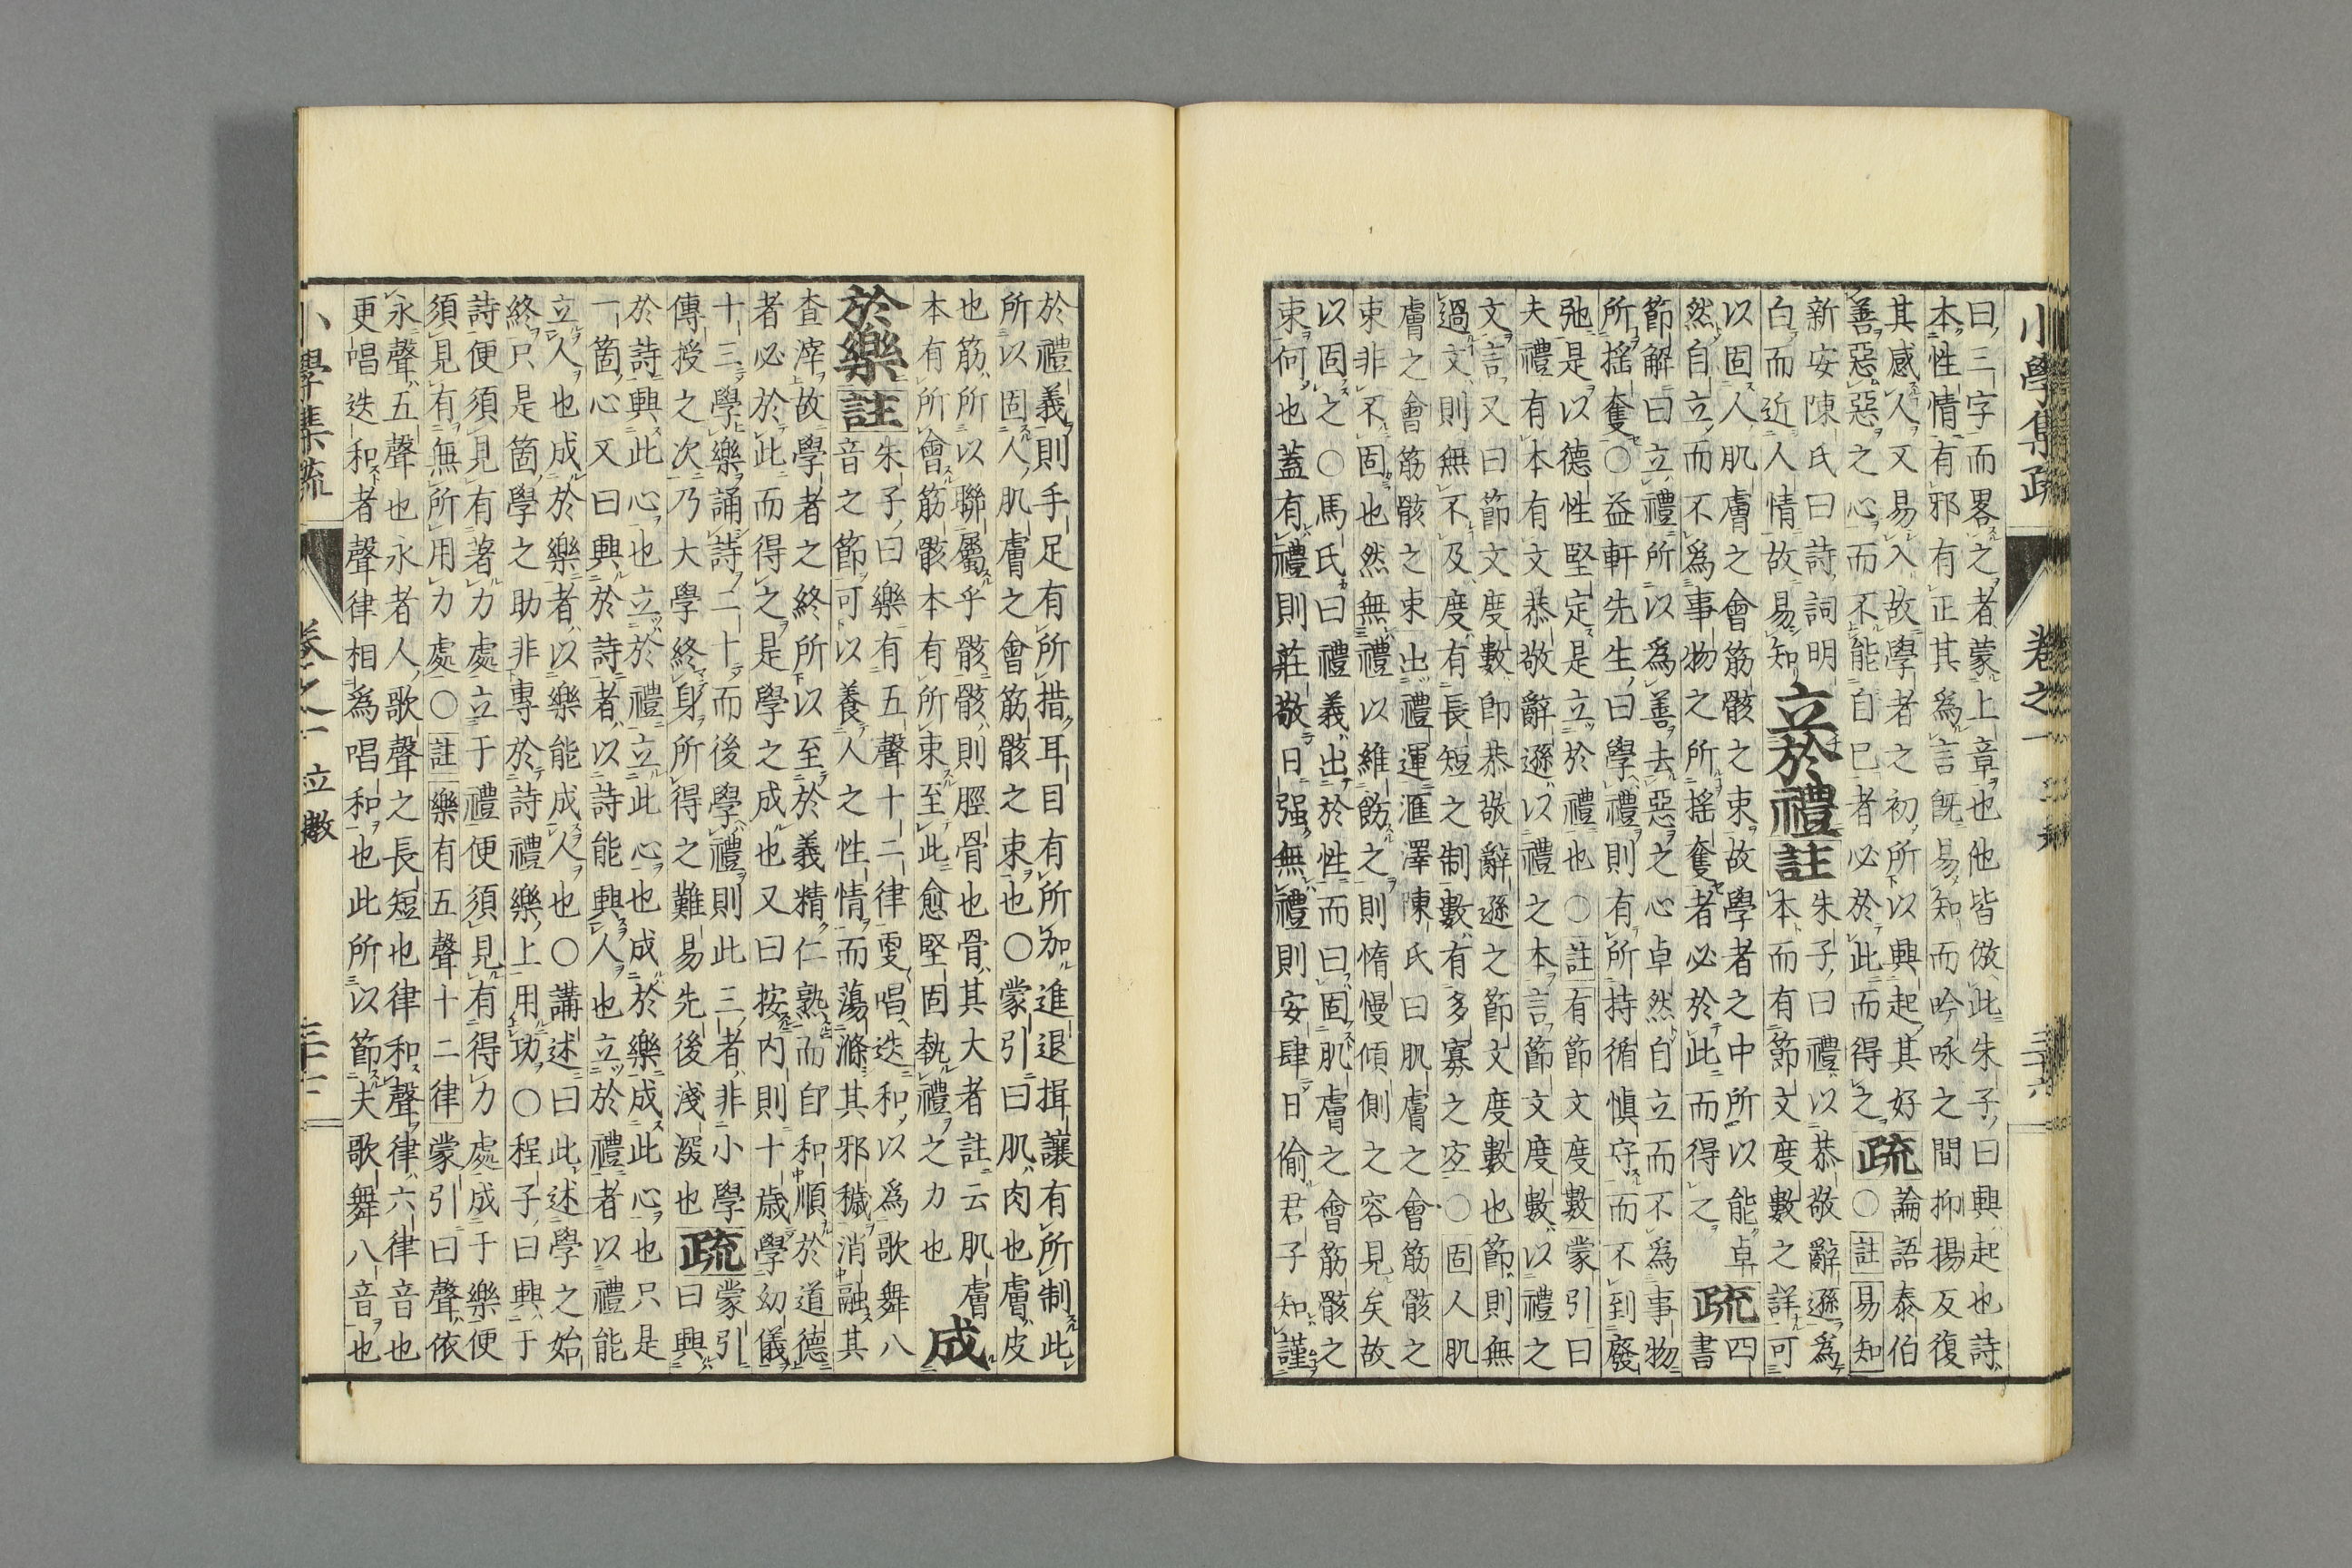 小學集疏
卷之一
曰三字而畧之者蒙上章也他皆倣此朱子曰興起也詩
本性情有邪有正其爲言旣易知而吟咏之間抑揚反復
其感人又易入故學者之初所以興起其好
善惡惡之心而不能自已者必於此而得之
疏
論語泰伯
○註易知
新安陳氏曰詩詞明
白而近人情故易知
立於禮註
朱子曰禮以恭敬辭遜爲
本而有節文度數之詳可
以固人肌膚之會筋骸之束故學者之中所以能卓
然自立而不爲事物之所搖奪者必於此而得之
疏
四
書
節解曰立禮所以爲善去惡之心卓然自立而不爲事物
所搖奪○益軒先生曰學禮則有所持循愼守而不到廢
弛是以德性堅定是立於禮也○註有節文度數蒙引曰
夫禮有本有文恭敬辭遜以禮之本言節文度數以禮之
文言又曰節文度數卽恭敬辭遜之節文度數也節則無
過文則無不及度有長短之制數有多寡之宜○固人肌
膚之會筋骸之束出禮運滙澤陳氏曰肌膚之會筋骸之
束非不固也然無禮以維飭之則惰慢傾側之容見矣故
以固之○馬氏曰禮義出於性而曰固肌膚之會筋骸之
束何也蓋有禮則莊敬日强無禮則安肆日偷君子知謹
於禮義則手足有所措耳目有所加進退揖讓有所制此
所以固人肌膚之會筋骸之束也○蒙引曰肌肉也膚皮
也筋所以聯屬乎骸骸則脛骨也骨其大者註云肌膚
本有所會筋骸本有所束至此愈堅固執禮之力也
成
於樂註
朱子曰樂有五聲十二律更唱迭和以爲歌舞八
音之節可以養人之性情而蕩滌其邪穢消融其
査滓故學者之終所以至於義精仁熟而自和順於道德
者必於此而得之是學之成也又曰按内則十歲學幼儀
十三學樂誦詩二十而後學禮則此三者非小學
傳授之次乃大學終身所得之難易先後淺深也
疏
蒙引
曰興
於詩興此心也立於禮立此心也成於樂成此心也只是
一箇心又曰興於詩者以詩能興人也立於禮者以禮能
立人也成於樂者以樂能成人也○講述曰此述學之始
終只是箇學之助非專於詩禮樂上用功○程子曰興于
詩便須見有著力處立于禮便須見有得力處成于樂便
須見有無所用力處○註樂有五聲十二律蒙引曰聲依
永聲五聲也永者人歌聲之長短也律和聲律六律音也
更唱迭和者聲律相爲唱和也此所以節夫歌舞八音也
卷之一
立敎